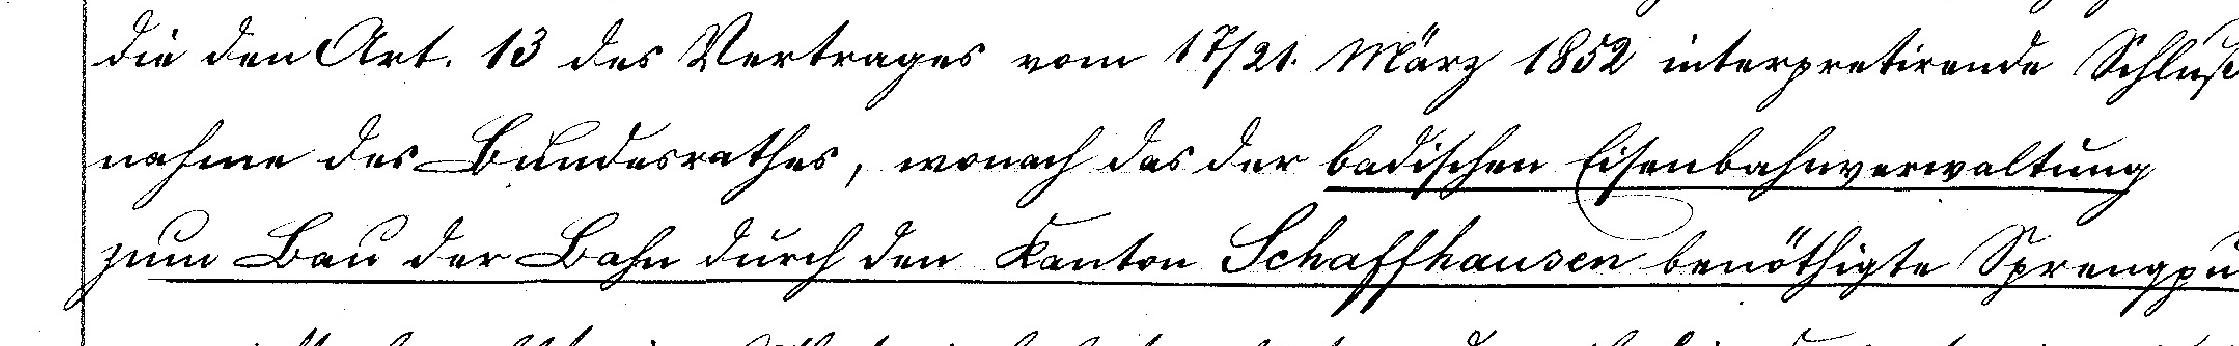 die den Art. 13 des Vertrages vom 17/21. März 1852 interpretirende Schluß
nahme des Bundesrathes, wonach das der badischen Eisenbahnverwaltung
zum Bau der Bahn durch den Kanton Schaffhausen benöthigte Sprengpu